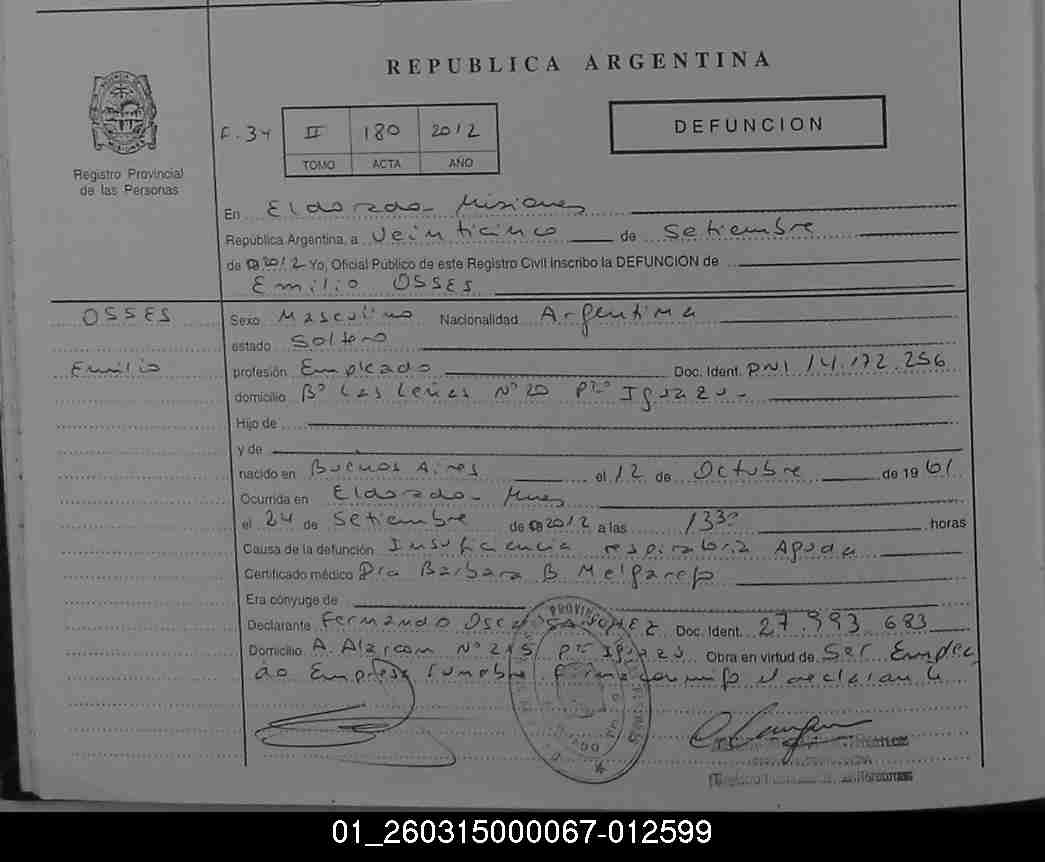 REPUBLICA ARGENTINA
Registro Provincial
de las Personas
F. 34 II 180 2012
TOMO ACTA AÑO
DEFUNCION
En Eldorado - Misiones
República Argentina, a Veinticinco de Setiembre
de 2012 Yo, Oficial Público de este Registro Civil inscribo la DEFUNCION de
Emilio OSSES
OSSES
Emilio
Sexo Masculino Nacionalidad Argentina
estado Soltero
profesión Empleado Doc. Ident. DNI 14.172.256
domicilio Bº Las Leñas Nº 20 Pto Iguazu -
Hijo de
y de
nacido en Buenos Aires el 12 de Octubre de 1961
Ocurrida en Eldorado - Mnes
el 24 de Setiembre de 2012 a las 1330 horas
Causa de la defunción Insuficiencia respiratoria Aguda
Certificado médico Dra Barbara B. Melgarejo
Era cónyuge de
Declarante Fernando Oscar SANCHEZ Doc. Ident. 27.993.683
Domicilio A. Alarcon Nº 215 Pto Iguazu Obra en virtud de Ser Emplea
do Empresa funebre. Firma conmigo el declarante
PROVINC
01_260315000067-012599